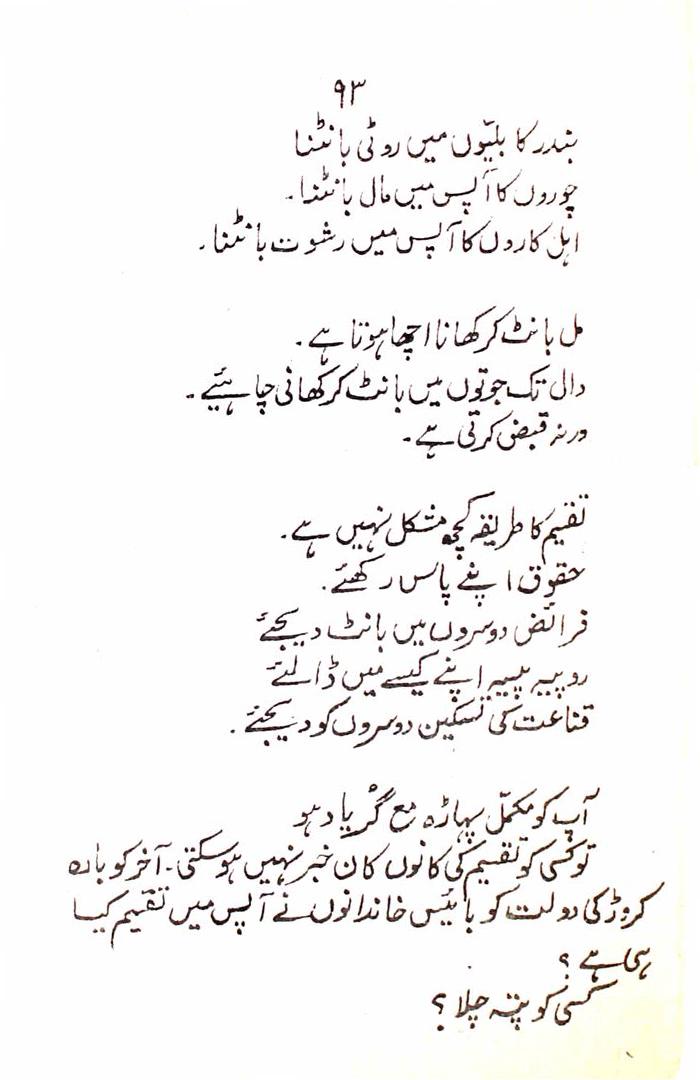 ۹۳
بندر کا بلیّوں میں روٹی بانٹنا
چوروں کا آپس میں مال بانٹنا۔
اہل کاروں کا آپس میں رشوت بانٹنا۔
مل بانٹ کر کھانا اچھا ہوتا ہے۔
دال تک جوتوں میں بانٹ کر کھانی چاہئیے۔
ورنہ قبض کرتی ہے۔
تقسیم کا طریقہ کچھ مشکل نہیں ہے۔
حقوق اپنے پاس رکھئے۔
فرائض دوسروں میں بانٹ دیجئے
روپیہ پیسہ اپنے کیسے میں ڈالئے
قناعت کی تسکین دوسروں کو دیجئے۔
آپ کو مکمّل پہاڑہ مع گُر یاد ہو
تو کسی کو تقسیم کی کانوں کان خبر نہیں ہو سکتی۔ آخر کو بارہ
کروڑ کی دولت کو بائیس خاندانوں نے آپس میں تقسیم کیا
ہی ہے ؟
کسی کو پتہ چلا ؟